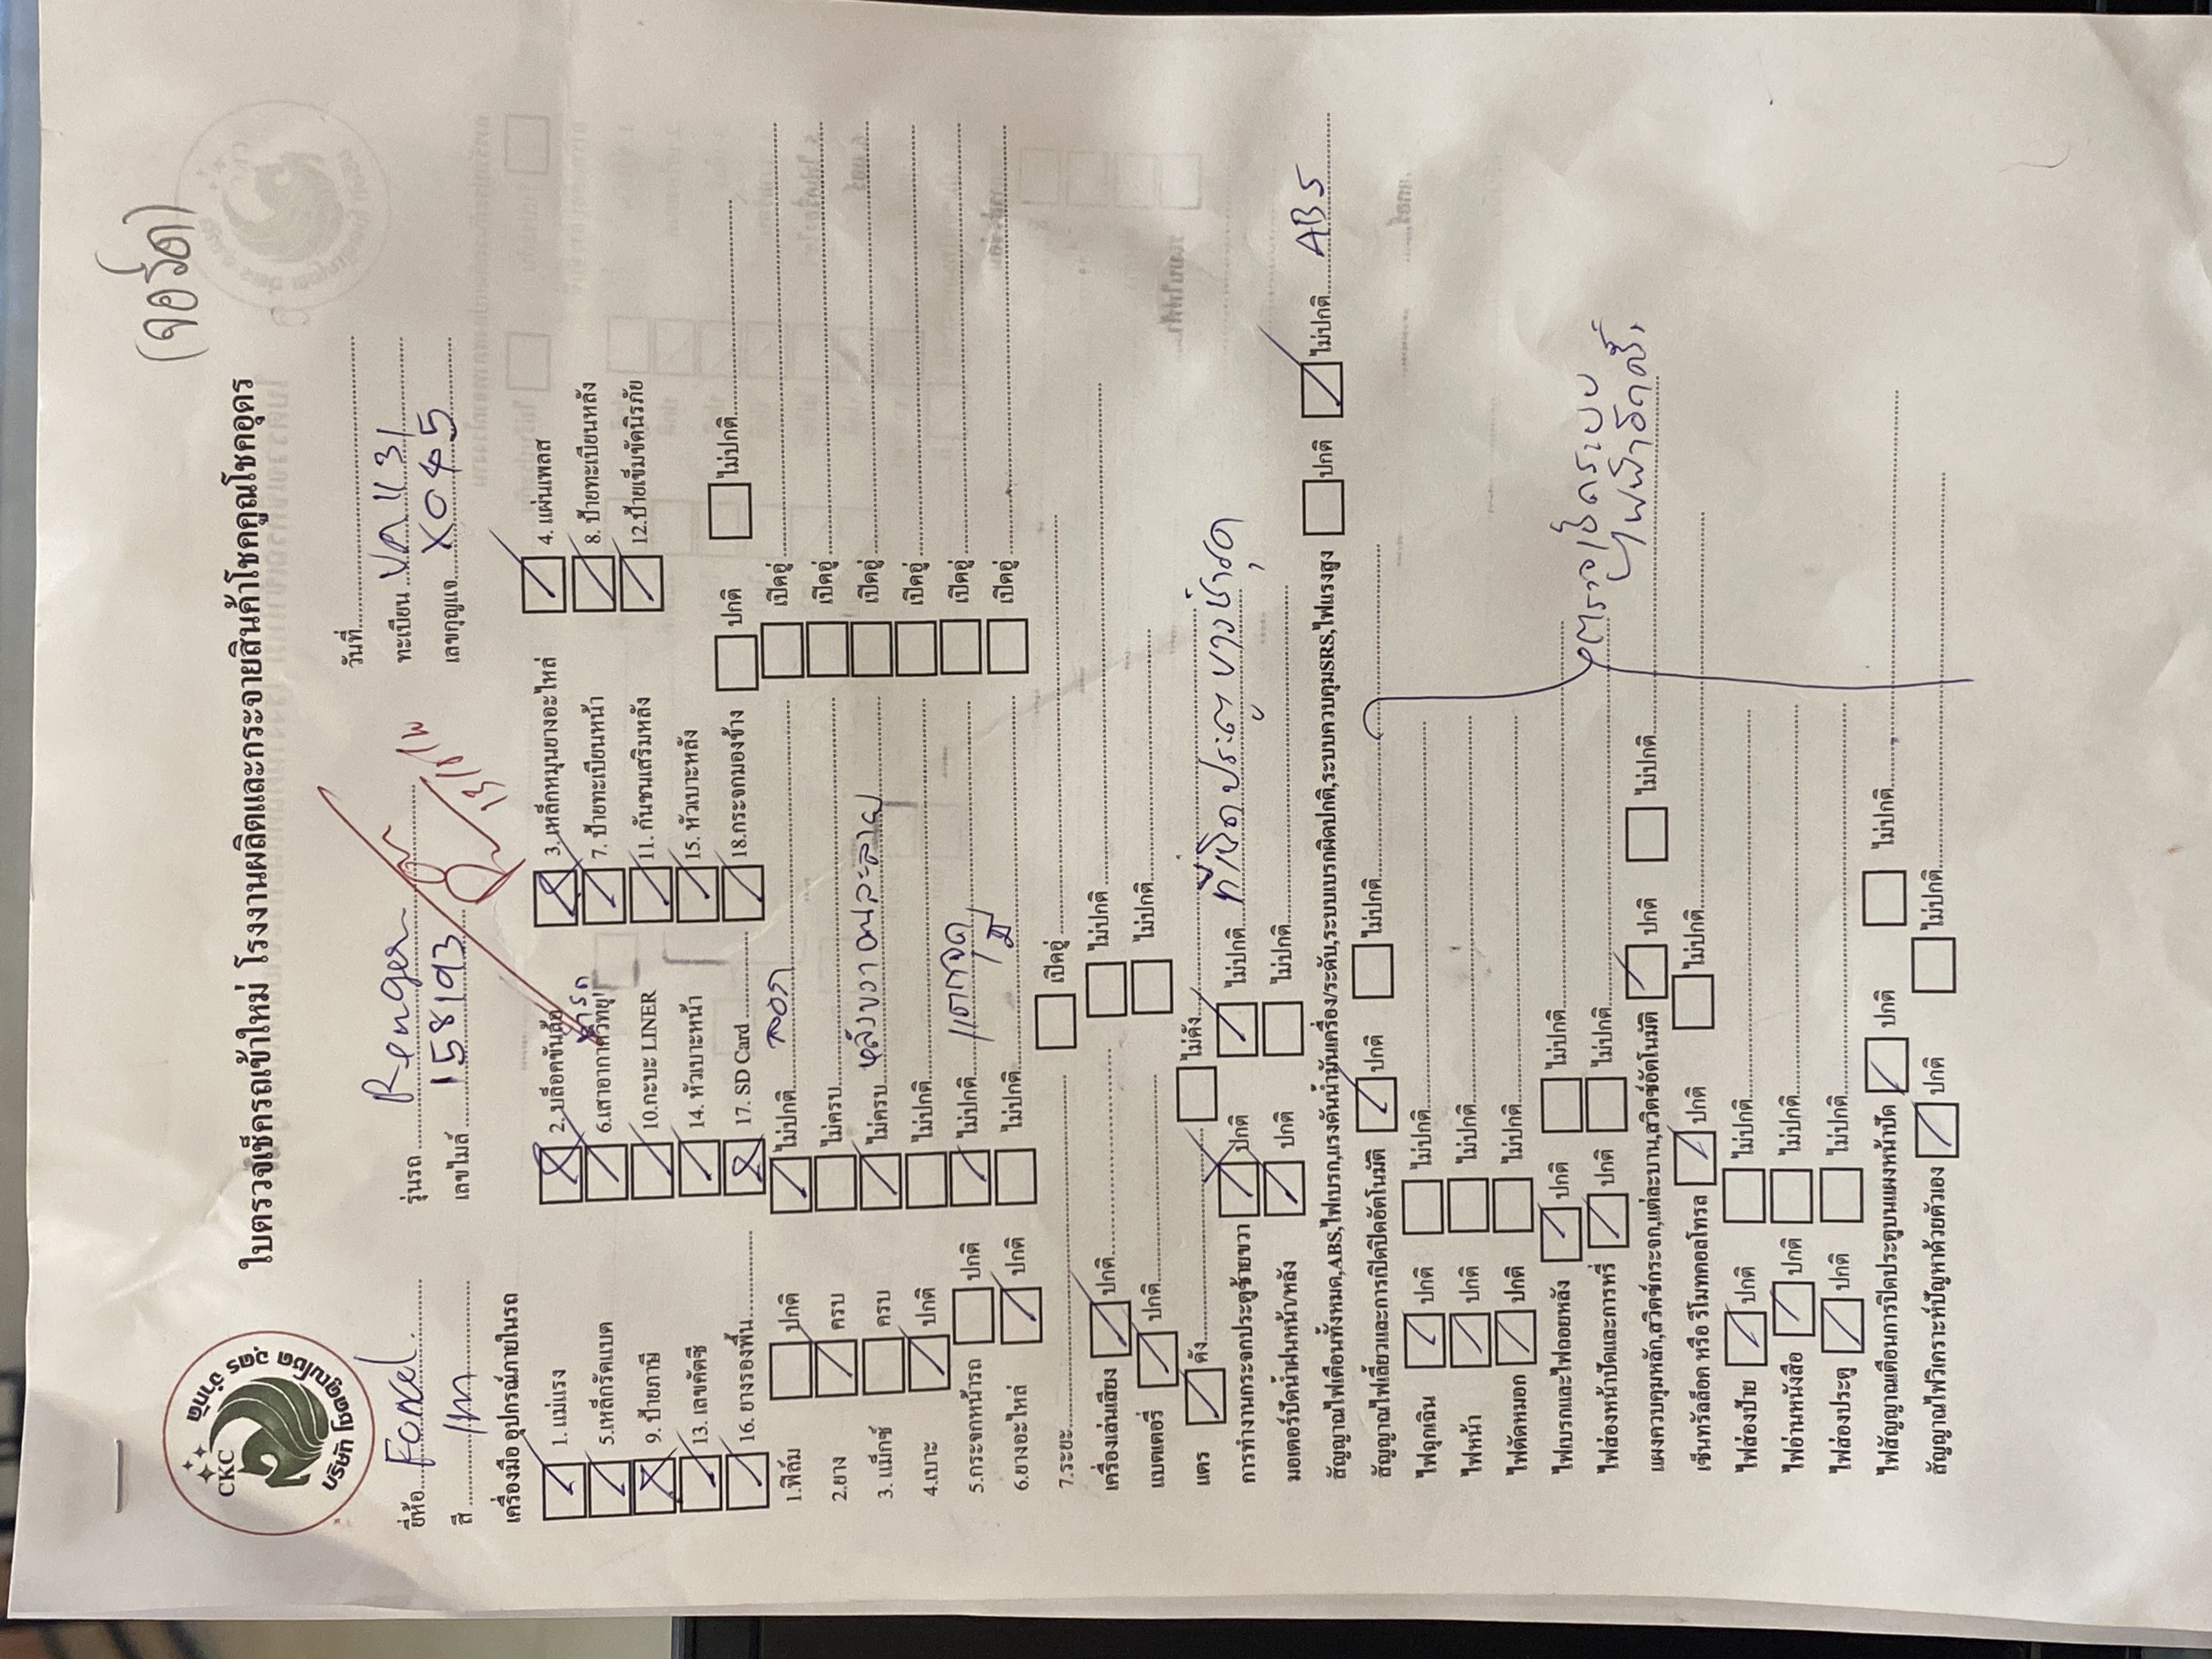 (จอร์ด)
CKC
บริษัท โชคคูณโชค อุดร จำกัด
ใบตรวจเช็ครถเข้าใหม่ โรงงานผลิตและกระจายสินค้าโชคคูณโชคอุดร
วันที่
ยี่ห้อ Ford. รุ่นรถ Renger ทะเบียน 1131
สี เทา เลขไมล์ 158193 เลขกุญแจ X045
เครื่องมือ อุปกรณ์ภายในรถ
1. แม่แรง 2. บล็อคขันล้อ 3. เหล็กหมุนยางอะไหล่ 4. แผ่นเพลส
5.เหล็กรัดแบต 6.เสาอากาศวิทยุ ชำรุด 7. ป้ายทะเบียนหน้า 8. ป้ายทะเบียนหลัง
9. ป้ายภาษี 10.กะบะ LINER 11. กันชนเสริมหลัง 12.ป้ายเข็มขัดนิรภัย
13. เลขคัตซี 14. หัวเบาะหน้า 15. หัวเบาะหลัง
16. ยางรองพื้น 17. SD Card 18.กระจกมองข้าง ปกติ ไม่ปกติ
1.ฟิล์ม ปกติ ไม่ปกติ ลอก เปิดอู่
2.ยาง ครบ ไม่ครบ เปิดอู่
3. แม็กซ์ ครบ ไม่ครบ หลังขวาคนละลาย เปิดอู่
4.เบาะ ปกติ ไม่ปกติ เปิดอู่
5.กระจกหน้ารถ ปกติ ไม่ปกติ แตก เปิดอู่
6.ยางอะไหล่ ปกติ ไม่ปกติ เปิดอู่
7.ระยะ เปิดอู่
เครื่องเล่นเสียง ปกติ ไม่ปกติ
แบตเตอรี่ ปกติ ไม่ปกติ
แตร ดัง ไม่ดัง
การทำงานกระจกประตูซ้ายขวา ปกติ ไม่ปกติ ที่เปิดประตู ชำรุด
มอเตอร์ปัดน้ำฝนหน้า/หลัง ปกติ ไม่ปกติ
สัญญาณไฟเตือนทั้งหมด,ABS,ไฟเบรก,แรงดันน้ำมันเครื่อง/ระดับ,ระบบเบรกผิดปกติ,ระบบควบคุมSRS,ไฟแรงสูง ปกติ ไม่ปกติ ABS
สัญญาณไฟเลี้ยวและการเปิดปิดอัตโนมัติ ปกติ ไม่ปกติ
ไฟฉุกเฉิน ปกติ ไม่ปกติ
ไฟหน้า ปกติ ไม่ปกติ
ไฟตัดหมอก ปกติ ไม่ปกติ
ไฟเบรกและไฟถอยหลัง ปกติ ไม่ปกติ
ตรวจเช็คระบบ
ไฟฟ้า
ไฟส่องหน้าปัดและการหรี่ ปกติ ไม่ปกติ
แผงควบคุมหลัก,สวิตซ์กระจก,แต่ละบาน,สวิตซ์อัตโนมัติ ปกติ ไม่ปกติ
เซ็นทรัลล็อค หรือ รีโมทคอลโทรล ปกติ ไม่ปกติ
ไฟส่องป้าย ปกติ ไม่ปกติ
ไฟอ่านหนังสือ ปกติ ไม่ปกติ
ไฟส่องประตู ปกติ ไม่ปกติ
ไฟสัญญาณเตือนการปิดประตูบนแผงหน้าปัด ปกติ ไม่ปกติ
สัญญาณไฟวิเคราะห์ปัญหาด้วยตัวเอง ปกติ ไม่ปกติ